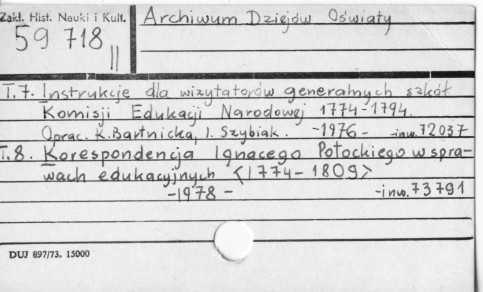 Zakł. Hist. Nauki i Kult.
59 718
II
Archiwum Dziejów Oświaty
T.7. Instrukcje dla wizytatorów generalnych szkół
Komisji Edukacji Narodowej 1774-1794.
Oprac. K. Bartnicka, I. Szybiak. -1976- inw. 72037
T.8. Korespondencja Ignacego Potockiego w spra-
wach edukacyjnych <1774-1809>
-1978- -inw. 73791
DUJ 897/73. 15000